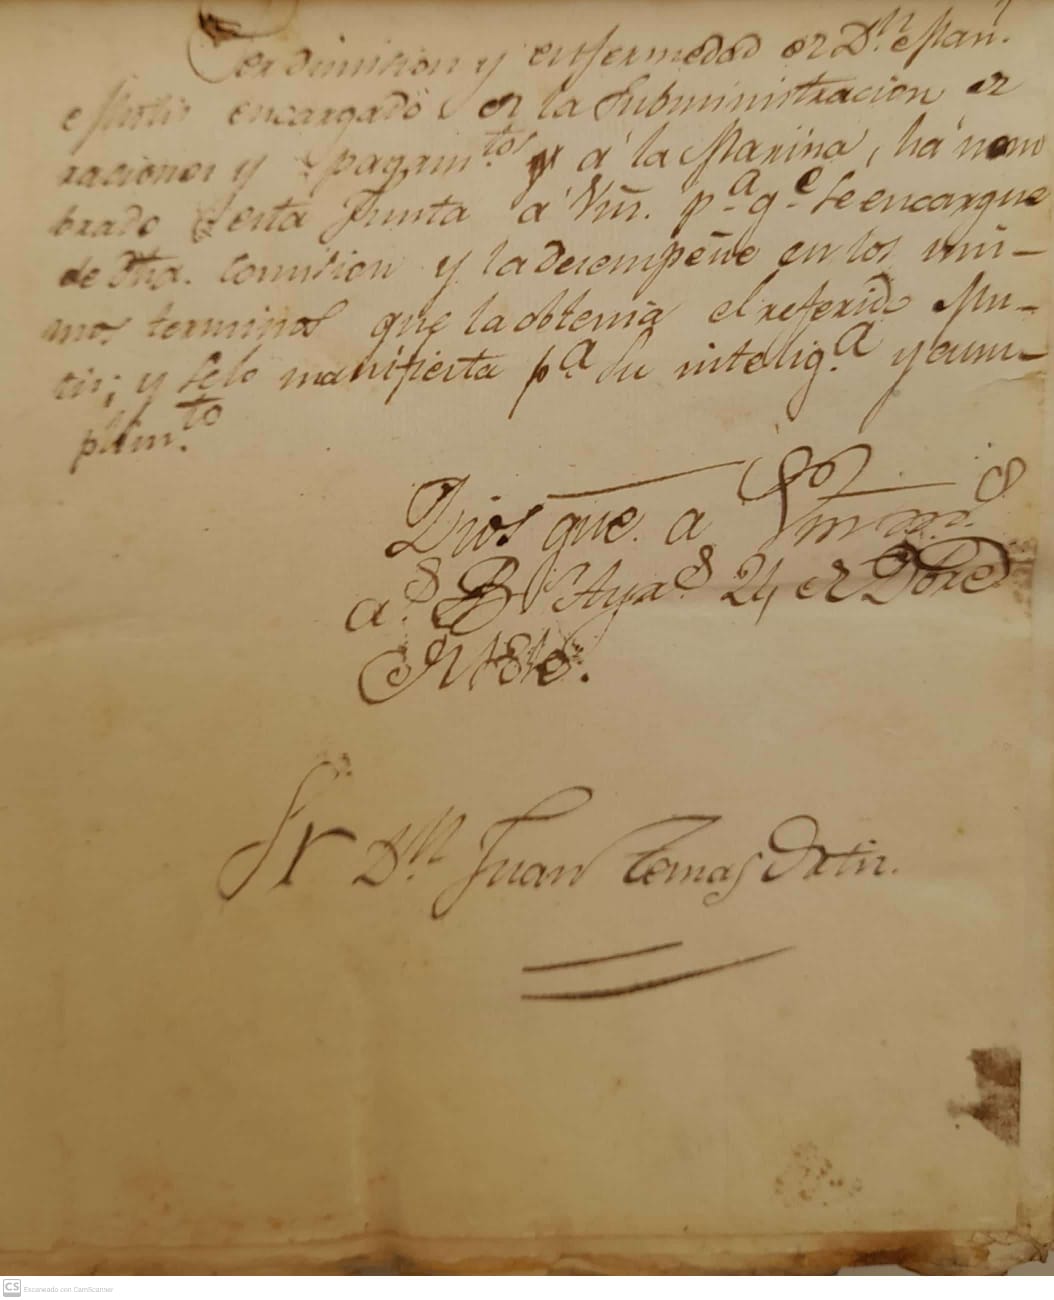 Por dimision y enfermedad de D.n Man.l
Mutis encargado de la Subministracion de
raciones y pagam.tos á la Marina, há nom
brado esta Junta á Vm. p.a q.e se encargue
de dha. Comision y la desempeñe en los mis-
mos terminos que la obtenia el referido Mu-
tis; y se lo manifiesta p.a su intelig.a y cum-
plim.to
Dios gue. a Vm m.s
a.s B.s Ay.s 24 de Dbre
de 1810.
Sr D.n Juan Tomas Ortiz.
CS Escaneado con CamScanner